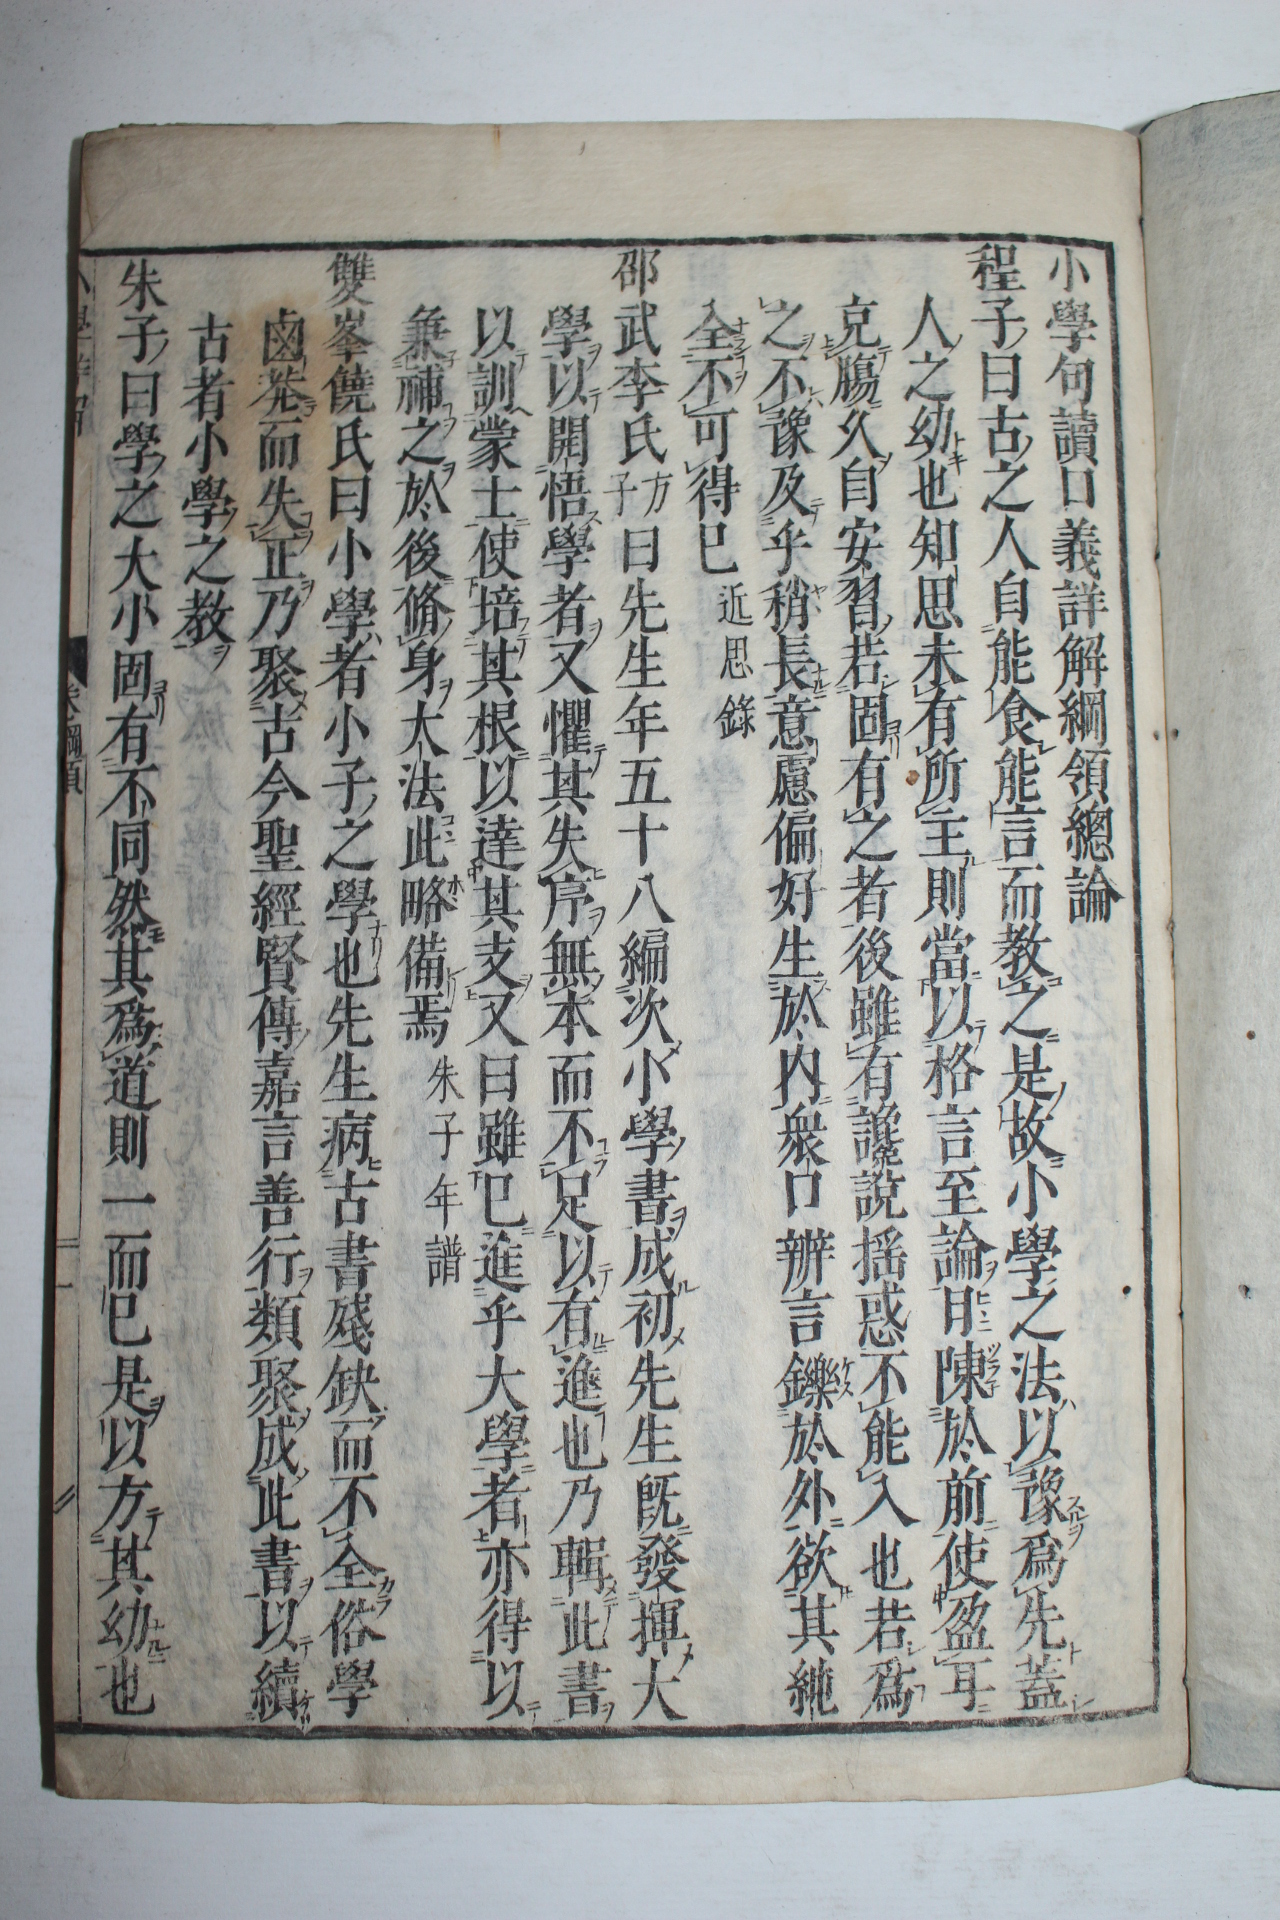 小學句讀口義詳解綱領總論
程子曰古之人自能食能言而教之是故小學之法以豫爲先蓋
人之幼也知思未有所主則當以格言至論日陳於前使盈耳
充膓久自安習若固有之者後雖有讒說揺惑不能入也若爲
之不豫及乎稍長意慮偏好生於内衆口辨言鑠於外欲其純
全不可得已 近思錄
邵武李氏方子曰先生年五十八編次小學書成初先生旣發揮大
學以開悟學者又懼其失序無本而不足以有進也乃輯此書
以訓蒙士使培其根以達其支又曰雖已進乎大學者亦得以
兼補之於後脩身大法此略備焉 朱子年譜
雙峯饒氏曰小學者小子之學也先生病古書殘缺而不全俗學
鹵莾而失正乃聚古今聖經賢傳嘉言善行類聚成此書以續
古者小學之教
朱子曰學之大小固有不同然其爲道則一而已是以方其幼也
卷綱領
一